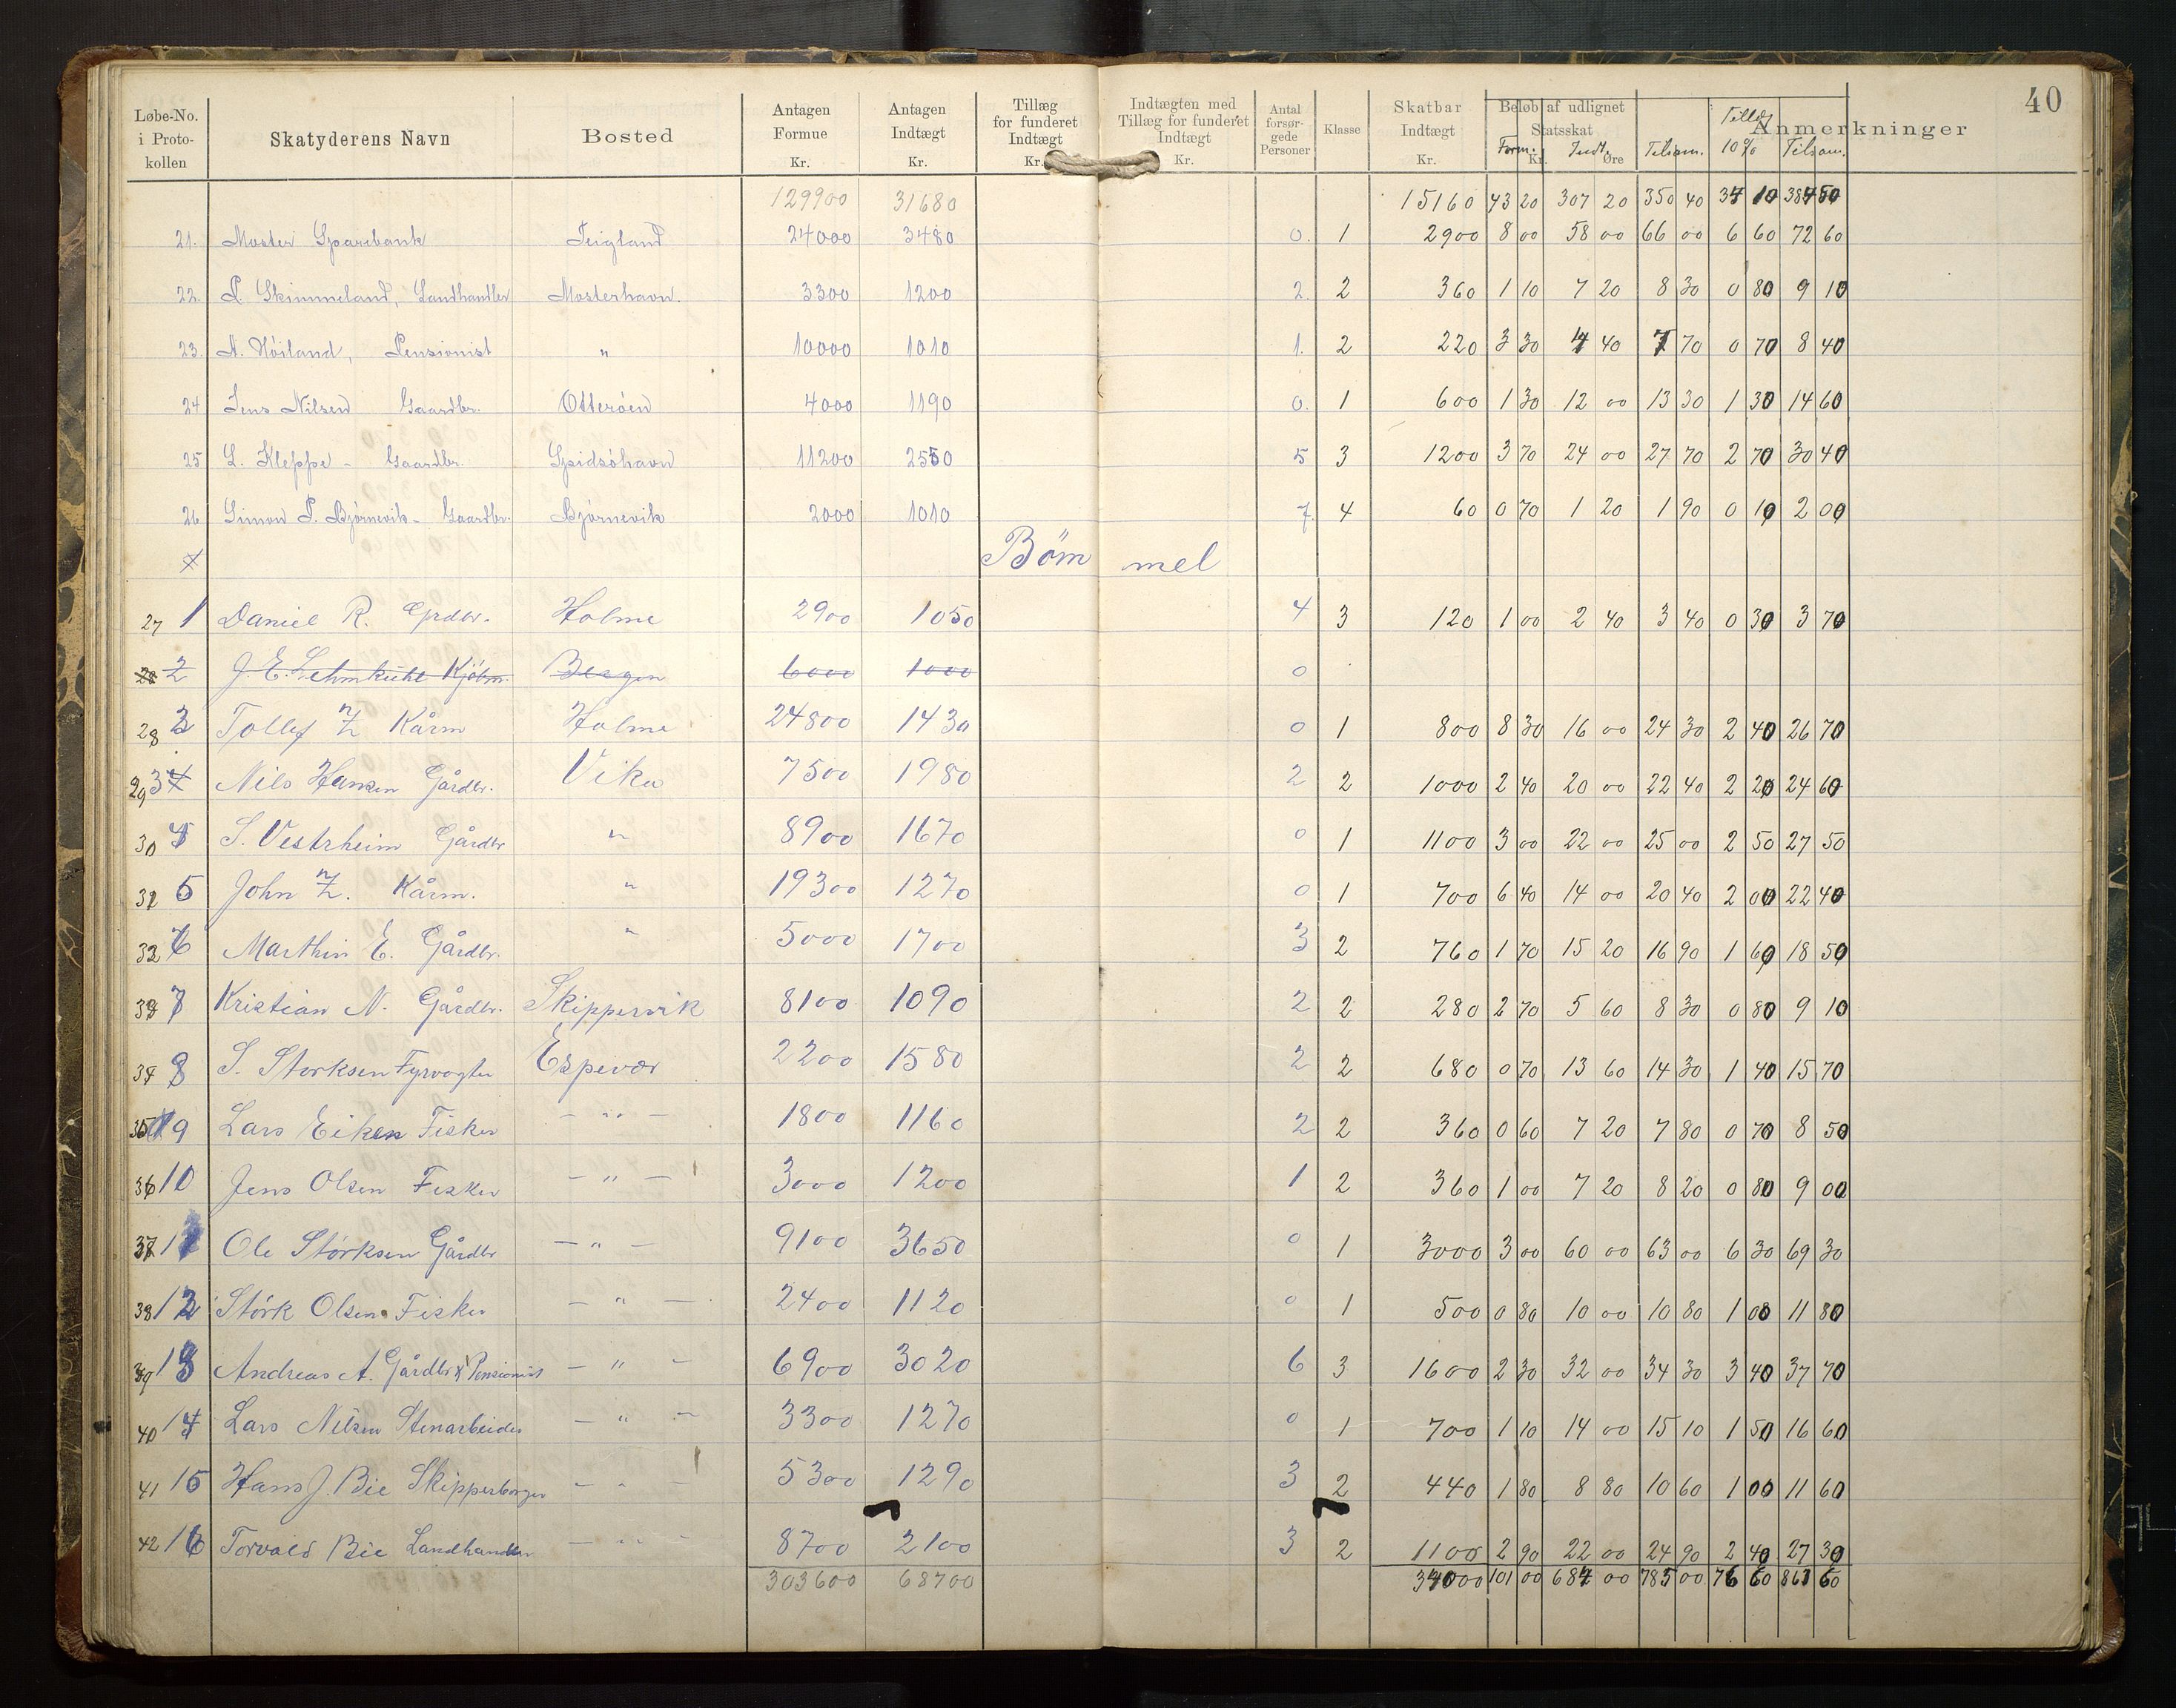 40
Løbe-No. i Proto-kollen | Skatyderens Navn | Bosted | Antagen Formue Kr. | Antagen Indtægt Kr. | Tillæg for funderet Indtægt Kr. | Indtægten med Tillæg for funderet Indtægt Kr. | Antal forsør-gede Personer | Klasse | Skatbar Indtægt Kr. | Beløb af udlignet Statsskat Kr. Øre Form. Indt. | Tilsam. | Tillæg 10% | Tilsam. | Anmerkninger
129900 31680 15160 43 20 307 20 350 40 34 10 384 50
21. Moster Sparebank Teigland 24000 3480 0. 1 2900 8 00 58 00 66 00 6 60 72 60
22. P. Skimmeland, Landhandler Mosterhavn. 3300 1200 2. 2 360 1 10 7 20 8 30 0 80 9 10
23. A. Höiland, Pensionist " 10000 1010 1. 2 220 3 30 4 40 7 70 0 70 8 40
24 Jens Nilsen Gaardbr. Otteröen 4000 1190 0. 1 600 1 30 12 00 13 30 1 30 14 60
25 L. Kleppe - Gaardbr. Spidsöhavn 11200 2550 5 3 1200 3 70 24 00 27 70 2 70 30 40
26 Simon P. Björnevik - Gaardbr. Björnevik 2000 1010 7. 4 60 0 70 1 20 1 90 0 10 2 00
Bömmel
27 1 Daniel R. Grdbr. Holme 2900 1050 4 3 120 1 00 2 40 3 40 0 30 3 70
28 2 J. E. Lehmkuhl Kjöbm. Bergen 6000 1000 0
28 2 Tollef Kårm Holme 24800 1430 0 1 800 8 30 16 00 24 30 2 40 26 70
29 3 Nils Hansen Gårdbr. Vika 7500 1980 2 2 1000 2 40 20 00 22 40 2 20 24 60
30 4 S. Vestrheim Gårdbr " 8900 1670 0 1 1100 3 00 22 00 25 00 2 50 27 50
31 5 John Kårm. " 19300 1270 0 1 700 6 40 14 00 20 40 2 00 22 40
32 6 Marthin E. Gårdbr. " 5000 1700 3 2 760 1 70 15 20 16 90 1 60 18 50
33 7 Kristian N. Gårdbr. Skippervik 8100 1090 2 2 280 2 70 5 60 8 30 0 80 9 10
34 8 S. Storksen Fyrvogter Espevær 2200 1580 2 2 680 0 70 13 60 14 30 1 40 15 70
35 9 Lars Eiken Fisker - " - 1800 1160 2 2 360 0 60 7 20 7 80 0 70 8 50
36 10 Jens Olsen Fisker - " - 3000 1200 1 2 360 1 00 7 20 8 20 0 80 9 00
37 11 Ole Störksen Gårdbr - " - 9100 3650 0 1 3000 3 00 60 00 63 00 6 30 69 30
38 12 Störk Olsen Fisker - " - 2400 1120 0 1 500 0 80 10 00 10 80 1 00 11 80
39 13 Andreas A. Gårdbr & Pensionist - " - 6900 3020 6 3 1600 2 30 32 00 34 30 3 40 37 70
40 14 Lars Nilsen Stenarbeider - " - 3300 1270 0 1 700 1 10 14 00 15 10 1 50 16 60
41 15 Hans J. Bie Skipperborger - " - 5300 1290 3 2 440 1 80 8 80 10 60 1 00 11 60
42 16 Torvald Bie Landhandler - " - 8700 2100 3 2 1100 2 90 22 00 24 90 2 40 27 30
303600 68700 34000 101 00 684 00 785 00 76 60 861 60